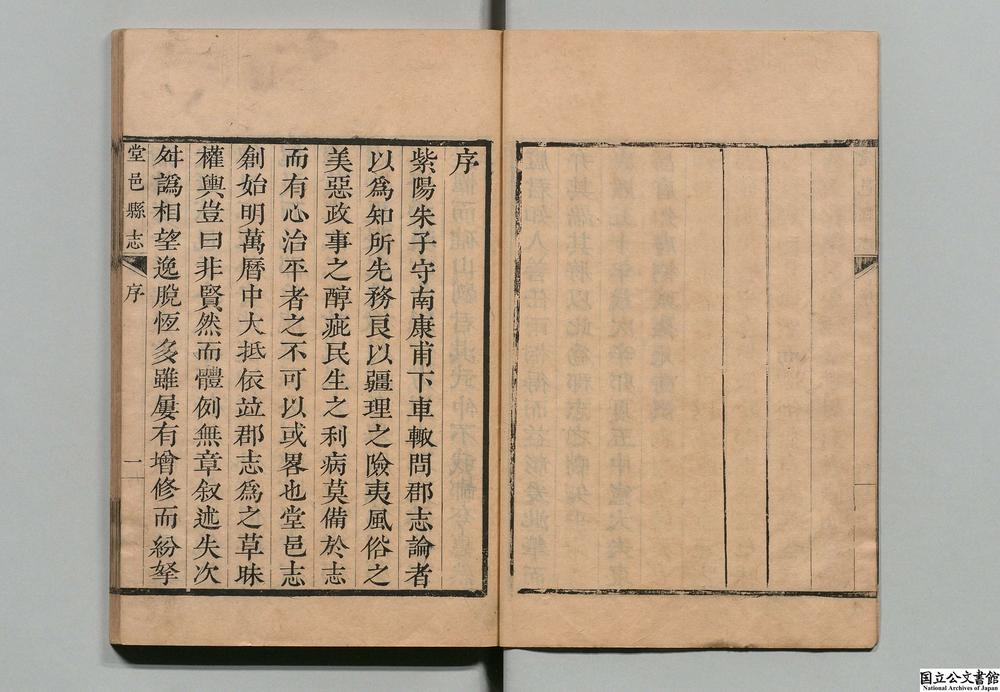 序
紫陽朱子守南康甫下車輙問郡志論者
以爲知所先務良以疆理之險夷風俗之
美惡政事之醇疵民生之利病莫備於志
而有心治平者之不可以或畧也堂邑志
創始明萬曆中大抵依竝郡志爲之草昧
權輿豈曰非賢然而體例無章叙述失次
舛譌相望逸脫恆多雖屢有增修而紛拏
堂邑縣志
序
一
国立公文書館
National Archives of Japan